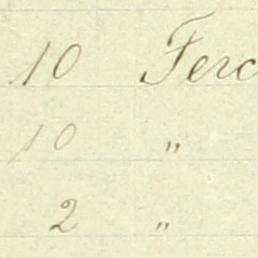 10 Ferc
10 "
2 "